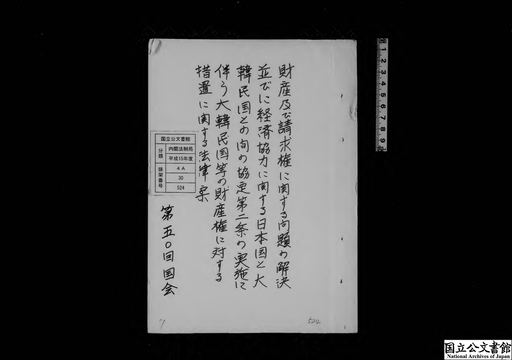 財産及び請求権に関する問題の解決
並びに経済協力に関する日本国と大
韓民国との間の協定第二条の実施に
伴う大韓民国等の財産権に対する
措置に関する法律案
第五〇回国会
国立公文書館
分類
内閣法制局
平成15年度
排架番号
4A
30
524
7
524
1 2 3 4 5 6 7 8 9
国立公文書館
National Archives of Japan